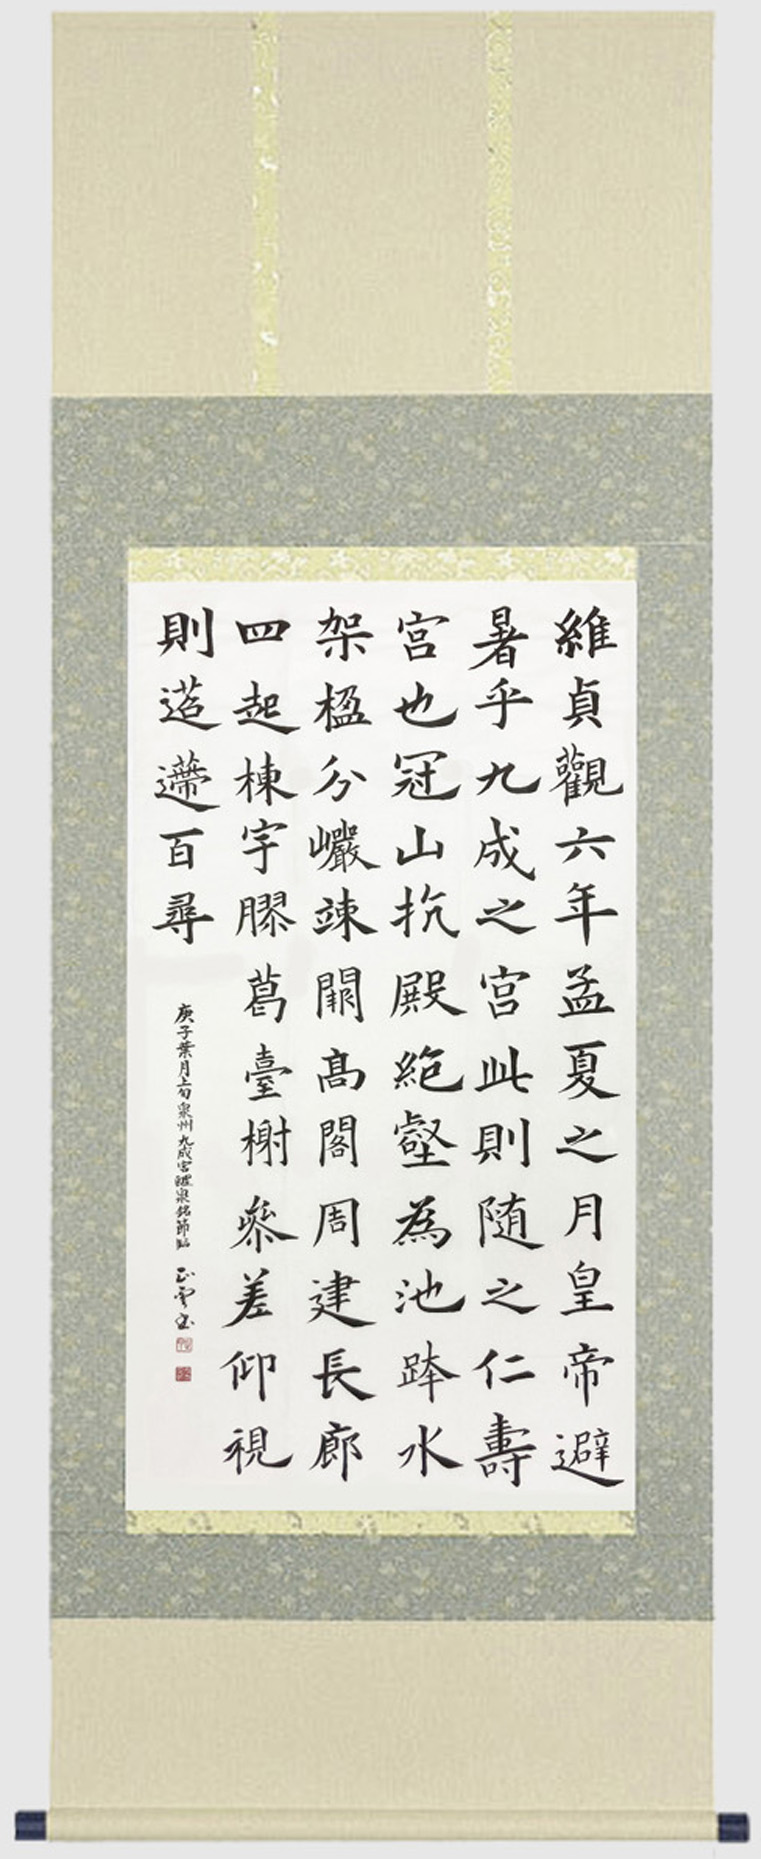 維貞觀六年孟夏之月皇帝避
暑乎九成之宮此則随之仁壽
宮也冠山抗殿絶壑為池跨水
架楹分巖竦闕高閣周建長廊
四起棟宇膠葛臺榭參差仰視
則迢遰百尋
庚子葉月上旬 泉州九成宮醴泉銘節臨